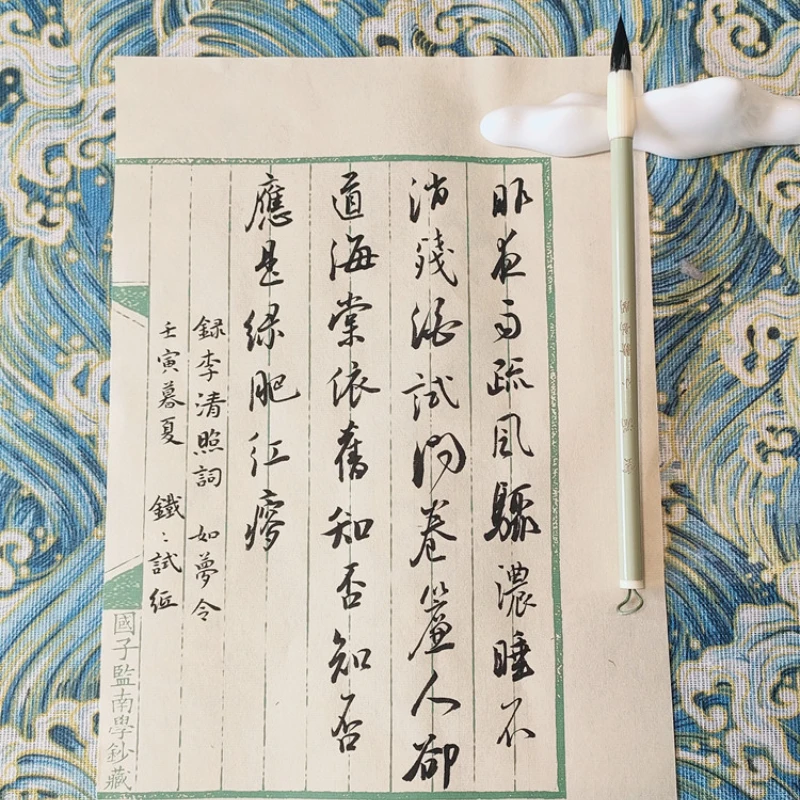 昨夜雨疏風驟濃睡不
消殘酒試問卷簾人卻
道海棠依舊知否知否
應是綠肥紅瘦
録李清照詞 如夢令
壬寅暮夏 鐵〻試紙
國子監南學鈔藏